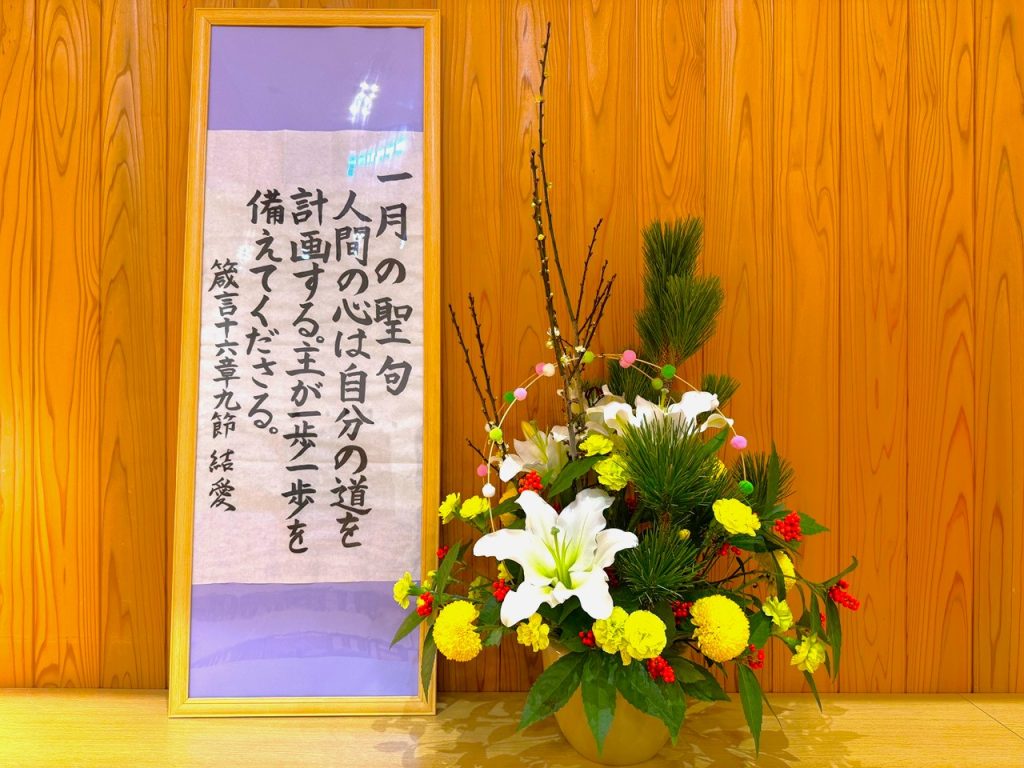 一月の聖句
人間の心は自分の道を
計画する。主が一歩一歩を
備えてくださる。
箴言十六章九節 結愛